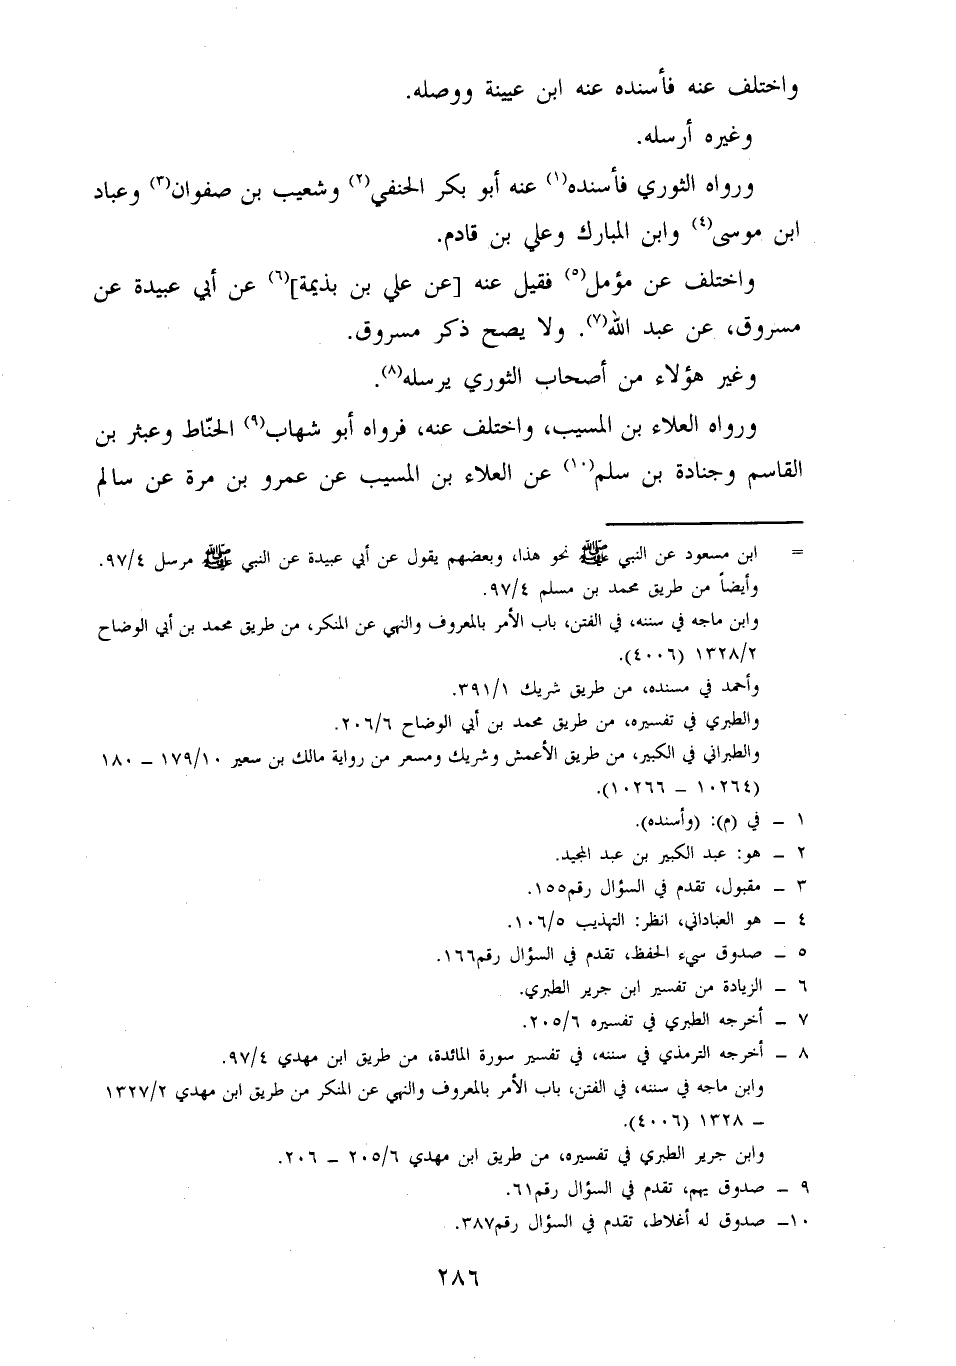 واختلف عنه فأسنده عنه ابن عيينة ووصله.
وغيره أرسله.
ورواه الثوري فأسنده(١) عنه أبو بكر الحنفي(٢) وشعيب بن صفوان(٣) وعباد
ابن موسى(٤) وابن المبارك وعلي بن قادم.
واختلف عن مؤمل(٥) فقيل عنه [عن علي بن بذيمة](٦) عن أبي عبيدة عن
مسروق، عن عبد الله(٧). ولا يصح ذكر مسروق.
وغير هؤلاء من أصحاب الثوري يرسله(٨).
ورواه العلاء بن المسيب، واختلف عنه، فرواه أبو شهاب(٩) الحنّاط وعبثر بن
القاسم وجنادة بن سلم(١٠) عن العلاء بن المسيب عن عمرو بن مرة عن سالم
= ابن مسعود عن النبي ﷺ نحو هذا، وبعضهم يقول عن أبي عبيدة عن النبي ﷺ مرسل ٩٧/٤.
وأيضاً من طريق محمد بن مسلم ٩٧/٤.
وابن ماجه في سننه، في الفتن، باب الأمر بالمعروف والنهي عن المنكر، من طريق محمد بن أبي الوضاح
١٣٢٨/٢ (٤٠٠٦).
وأحمد في مسنده، من طريق شريك ٣٩١/١.
والطبري في تفسيره، من طريق محمد بن أبي الوضاح ٢٠٦/٦.
والطبراني في الكبير، من طريق الأعمش وشريك ومسعر من رواية مالك بن سعير ١٧٩/١٠ ـ ١٨٠
(١٠٢٦٤ ـ ١٠٢٦٦).
١ ـ في (م): (وأسنده).
٢ ـ هو: عبد الكبير بن عبد المجيد.
٣ ـ مقبول، تقدم في السؤال رقم١٥٥.
٤ ـ هو العباداني، انظر: التهذيب ١٠٦/٥.
٥ ـ صدوق سيء الحفظ، تقدم في السؤال رقم١٦٦.
٦ ـ الزيادة من تفسير ابن جرير الطبري.
٧ ـ أخرجه الطبري في تفسيره ٢٠٥/٦.
٨ ـ أخرجه الترمذي في سننه، في تفسير سورة المائدة، من طريق ابن مهدي ٩٧/٤.
وابن ماجه في سننه، في الفتن، باب الأمر بالمعروف والنهي عن المنكر من طريق ابن مهدي ١٣٢٧/٢
ـ ١٣٢٨ (٤٠٠٦).
وابن جرير الطبري في تفسيره، من طريق ابن مهدي ٢٠٥/٦ ـ ٢٠٦.
٩ ـ صدوق يهم، تقدم في السؤال رقم٦١.
١٠ـ صدوق له أغلاط، تقدم في السؤال رقم٣٨٧.
٢٨٦